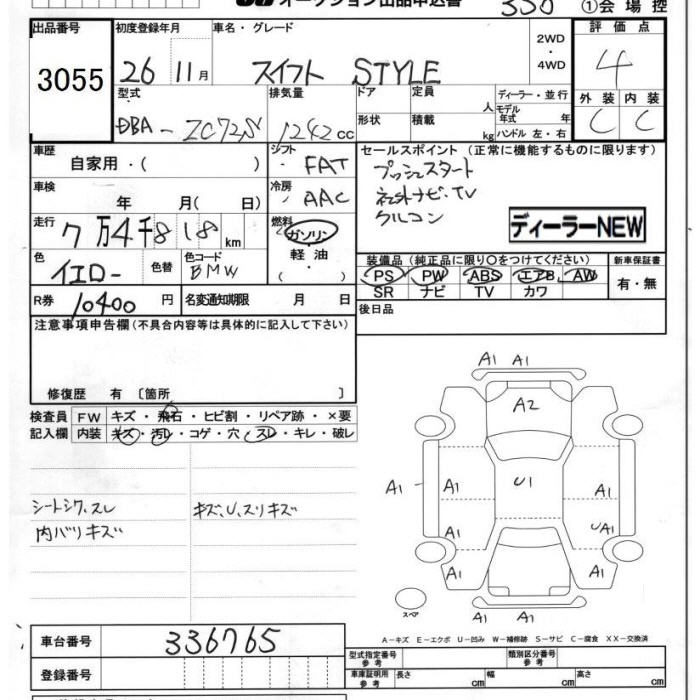 オークション出品申込書 350 ①会場控
出品番号 初度登録年月 車名・グレード 評価点
3055 26 11月 スイフト STYLE 2WD・4WD 4
型式 排気量 ドア 定員 人 ディーラー・並行 外装 内装
DBA-ZC72S 1242cc 形状 積載 kg モデル年式 年 ハンドル 左・右 C C
車歴 自家用・( ) シフト FAT セールスポイント (正常に機能するものに限ります)
車検 年 月( 日) 冷房 AAC プッシュスタート
社外ナビ・TV
クルコン
ディーラーNEW
走行 7万4千818km 燃料 ガソリン・軽油・( )
色 イエロー 色替 色コード BMW
装備品 (純正品に限り○をつけてください) 新車保証書
PS PW ABS エアB AW 有・無
SR ナビ TV カワ
R券 10400円 名変通知期限 月 日
後日品
注意事項申告欄(不具合内容等は具体的に記入して下さい)
修復歴 有 〔箇所 〕
検査員 FW キズ・飛石・ヒビ割・リペア跡・×要
記入欄 内装 キズ・汚レ・コゲ・穴・スレ・キレ・破レ
シートシワ、スレ キズ、U、スリキズ
内バリキズ
A1 A1
A2
A1 A1 U1 A1 A1
A1 UA1
A1 A1
スペア
A1 A1
A-キズ E-エクボ U-凹み W-補修跡 S-サビ C-腐食 XX-交換済
車台番号 336765
型式指定番号 参考 類別区分番号 参考
登録番号
車庫証明用 参考 長さ cm 幅 cm 高さ cm